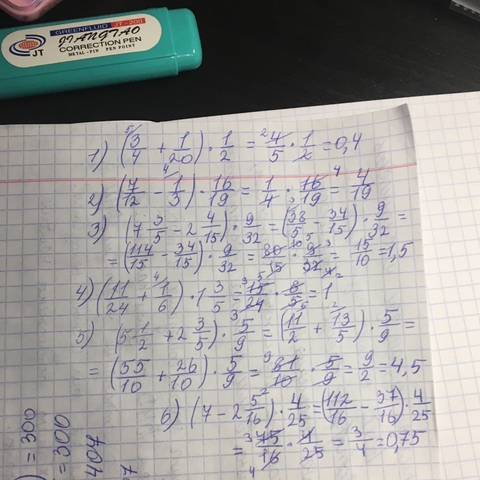 GREENFLUID JT. 200
JIANGTAO
CORRECTION PEN
METAL-PIN PEN POINT
JT
1) (3/4 + 1/20) · 1/2 = 4/5 · 1/2 = 0,4
2) (7/12 - 1/3) · 16/19 = 1/4 · 16/19 = 4/19
3) (7 3/5 - 2 4/15) · 9/32 = (38/5 - 34/15) · 9/32 =
= (114/15 - 34/15) · 9/32 = 80/15 · 9/32 = 15/10 = 1,5
4) (11/24 + 1/6) · 1 3/5 = 15/24 · 8/5 = 1
5) (5 1/2 + 2 3/5) · 5/9 = (11/2 + 13/5) · 5/9 =
= (55/10 + 26/10) · 5/9 = 81/10 · 5/9 = 9/2 = 4,5
6) (7 - 2 5/16) · 4/25 = (112/16 - 37/16) · 4/25
= 75/16 · 4/25 = 3/4 = 0,75
) = 300
= 300
407
7